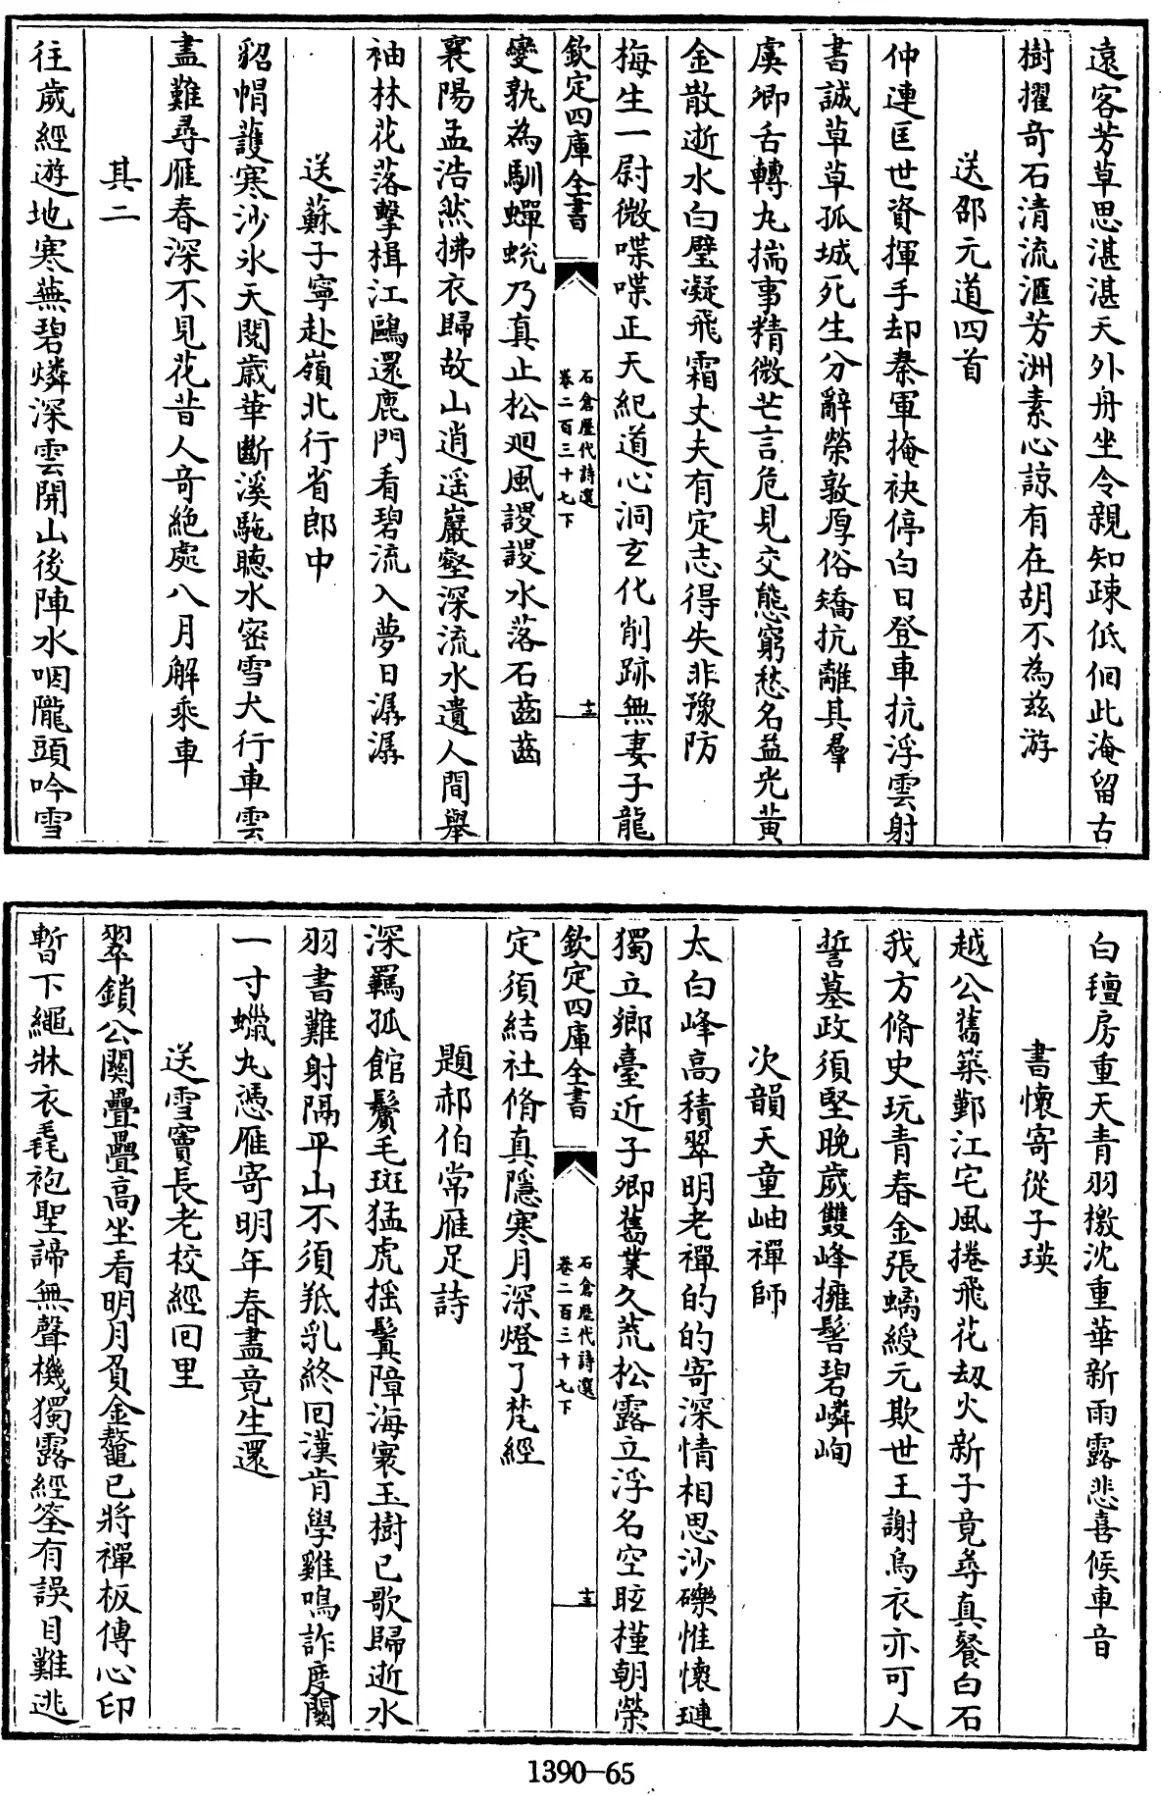 遠客芳草思湛湛天外舟坐令親知疎低佪此淹留古
樹擢竒石清流滙芳洲素心諒有在胡不為兹游
送邵元道四首
仲連匡世資揮手却秦軍掩袂停白日登車抗浮雲射
書誠草草孤城死生分辭榮敦厚俗矯抗離其羣
虞卿舌轉丸揣事精微芒言危見交態窮愁名益光黄
金散逝水白璧凝飛霜丈夫有定志得失非豫防
梅生一尉微喋喋正天紀道心洞玄化削跡無妻子龍
欽定四庫全書
石倉歷代詩選
卷二百三十七下
十三
變孰為馴蟬蛻乃真止松廻風謖謖水落石齒齒
襄陽孟浩然拂衣歸故山逍遥巖壑深流水遺人間舉
袖林花落擊楫江鷗還鹿門看碧流入夢日潺潺
送蘇子寧赴嶺北行省郎中
貂帽護寒沙氷天閲歳華斷溪駞聴水密雪犬行車雲
盡難尋雁春深不見花昔人竒絶處八月解乘車
其二
往歲經遊地寒蕪碧燐深雲開山後陣水咽隴頭吟雪
白氊房重天青羽檄沈重華新雨露悲喜候車音
書懷寄從子瑛
越公舊築鄞江宅風捲飛花刼火新子竟尋真餐白石
我方脩史玩青春金張蠄綬元欺世王謝烏衣亦可人
誓墓政須堅晩歲雙峰擁髻碧嶙峋
次韻天童岫禪師
太白峰高積翠明老禪的的寄深情相思沙礫惟懷璉
獨立鄉臺近子卿舊業久荒松露立浮名空眩槿朝榮
欽定四庫全書
石倉歷代詩選
卷二百三十七下
十三
定須結社脩真隱寒月深燈了梵經
題郝伯常雁足詩
深羈孤館鬢毛斑猛虎揺鬚障海寰玉樹已歌歸逝水
羽書難射隔平山不須羝乳終回漢肯學雞鳴詐度關
一寸蠟丸憑雁寄明年春盡竟生還
送雪竇長老校經回里
翠鎖公闗疊疊高坐看明月負金鼇已將禪板傳心印
暫下繩牀衣毳袍聖諦無聲機獨露經筌有誤目難逃
1390—65